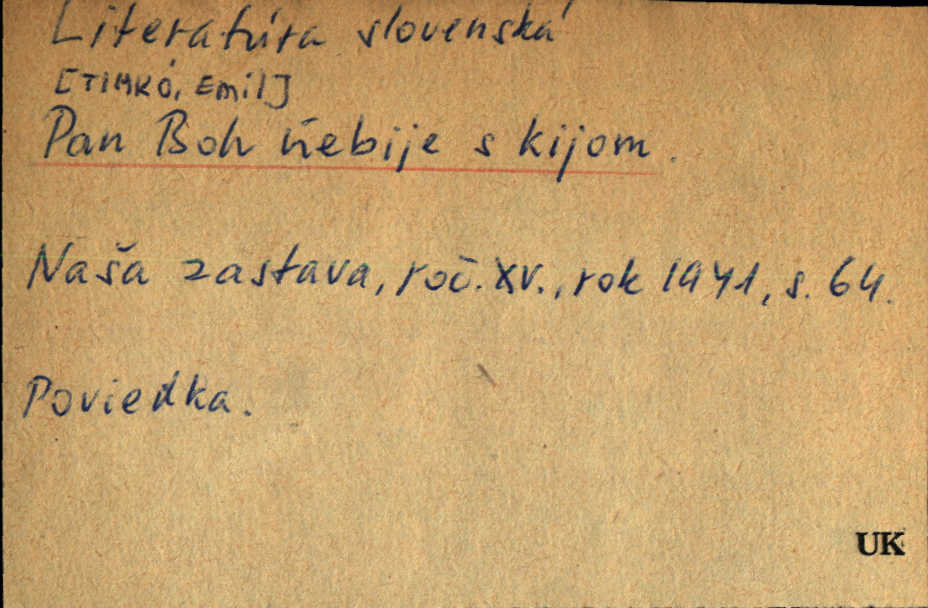 Literatúra slovenská
[TIMKÓ, Emil]
Pan Boh ňebije s kijom.
Naša zastava, roč. XV., rok 1941, s. 64.
Poviedka.
UK